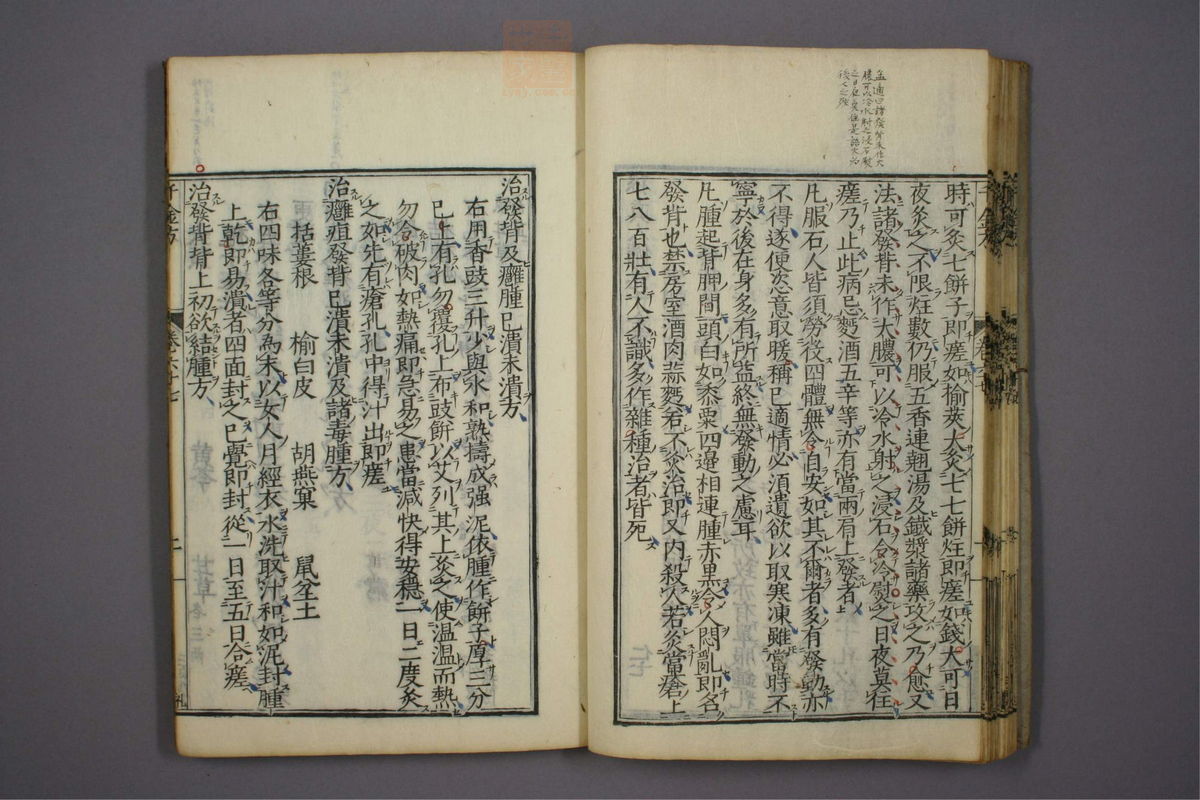 時可灸七餅子即瘥如榆莢大灸七七餅炷即瘥如錢大可日
夜灸之不限炷數仍服五香連翹湯及鐵漿諸藥攻之乃愈又
法諸發背未作大膿可以冷水射之浸石令冷熨之日夜莫住
瘥乃止此病忌麪酒五辛等亦有當兩肩上發者
凡服石人皆須勞役四體無令自安如其不爾者多有發動亦
不得遂便恣意取暖稱已適情必須遺欲以取寒凍雖當時不
寧於後在身多有所益終無發動之慮耳
凡腫起背胛間頭白如黍粟四邊相連腫赤黑令人悶亂即名
發背也禁房室酒肉蒜麪若不灸治即又內殺人若灸當瘡上
七八百壯有人不識多作雜種治者皆死
治發背及癰腫已潰未潰方
右用香豉三升少與水和熟擣成强泥依腫作餅子厚三分
已上有孔勿覆孔上布豉餅以艾列其上灸之使溫溫而熱
勿令破肉如熱痛即急易之患當減快得安穩一日二度灸
之如先有瘡孔孔中得汁出即瘥
治癰疽發背已潰未潰及諸毒腫方
括蔞根 榆白皮 胡燕窠 鼠坌土
右四味各等分為末以女人月經衣水洗取汁和如泥封腫
上乾即易潰者四面封之已覺即封從一日至五日令瘥
治發背背上初欲結腫方
千金方